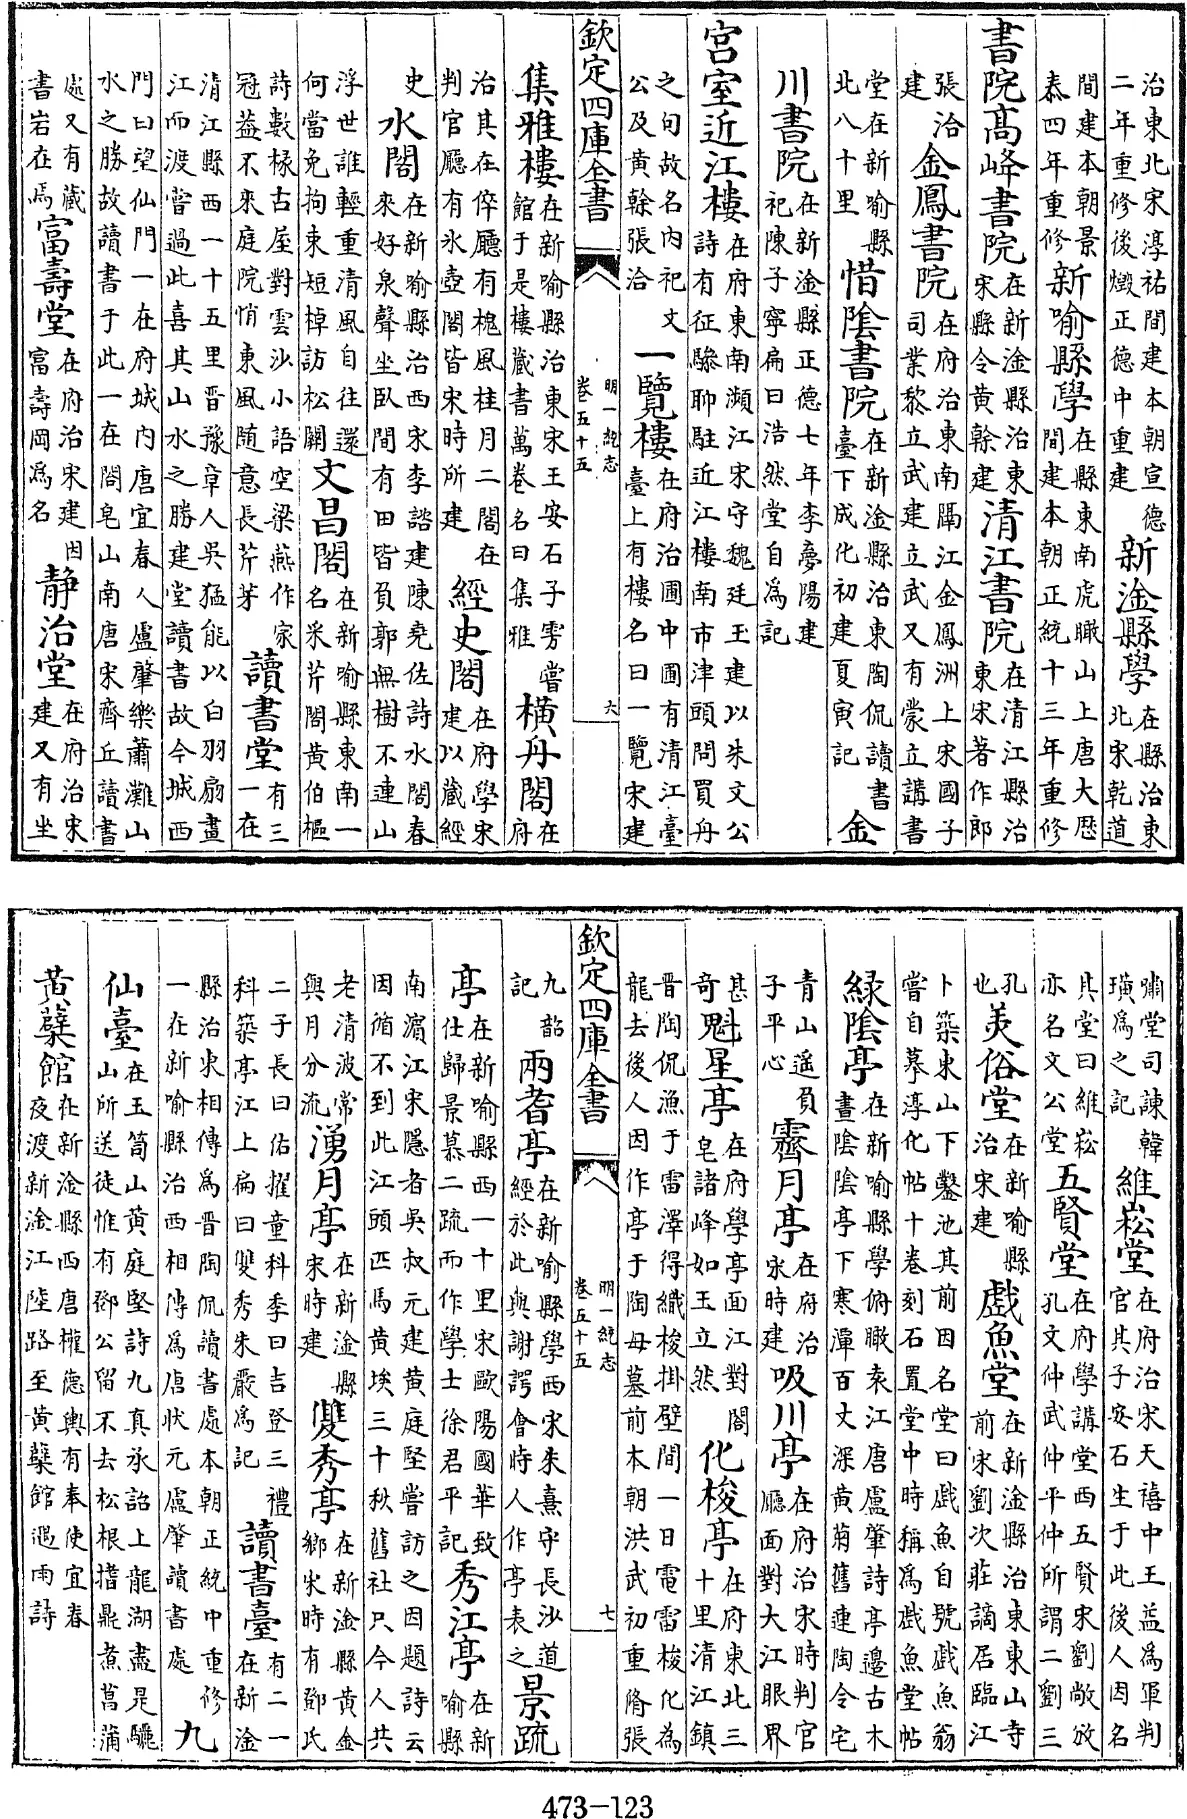 治東北宋淳祐間建本朝宣德二年重修後燬正德中重建新淦縣學在縣治東北宋乾道
間建本朝景泰四年重修新喻縣學在縣東南虎瞰山上唐大歴間建本朝正統十三年重修
書院高峰書院在新淦縣治東宋縣令黃榦建清江書院在清江縣治東宋著作郎
張洽建金鳳書院在府治東南隅江金鳳洲上宋國子司業黎立武建立武又有蒙立講書
堂在新喻縣北八十里惜陰書院在新淦縣治東陶侃讀書臺下成化初建夏寅記金
川書院在新淦縣正德七年李夢陽建祀陳子寧扁曰浩然堂自為記
宮室近江樓在府東南瀕江宋守魏廷玉建以朱文公詩有征驂聊駐近江樓南市津頭問買舟
之句故名内祀文公及黃榦張洽一覽樓在府治圃中圃有清江臺臺上有樓名曰一覽宋建
欽定四庫全書 明一統志 卷五十五 六
集雅樓在新喻縣治東宋王安石子雱嘗館于是樓藏書萬卷名曰集雅橫舟閣在府
治其在倅廳有槐風桂月二閣在判官廳有氷壺閣皆宋時所建經史閣在府學宋建以藏經
史水閣在新喻縣治西宋李諮建陳堯佐詩水閣春來好泉聲坐臥間有田皆負郭無樹不連山
浮世誰輕重清風自往還何當免拘束短棹訪松關文昌閣在新喻縣東南一名采芹閣黃伯樞
詩數椽古屋對雲沙小語空梁燕作家冠蓋不來庭院悄東風随意長芹芽讀書堂有三一在
清江縣西一十五里晋豫章人吳猛能以白羽扇畫江而渡嘗過此喜其山水之勝建堂讀書故今城西
門曰望仙門一在府城内唐宜春人盧肇樂蕭灘山水之勝故讀書于此一在閤皂山南唐宋齊丘讀書
處又有藏書岩在焉富壽堂在府治宋建因富壽岡為名静治堂在府治宋建又有坐
嘯堂司諫韓璜為之記維崧堂在府治宋天禧中王益為軍判官其子安石生于此後人因名
其堂曰維崧亦名文公堂五賢堂在府學講堂西五賢宋劉敞攽孔文仲武仲平仲所謂二劉三
孔也美俗堂在新喻縣治宋建戲魚堂在新淦縣治東東山寺前宋劉次莊謫居臨江
卜築東山下鑿池其前因名堂曰戲魚自號戲魚翁嘗自摹淳化帖十卷刻石置堂中時稱為戲魚堂帖
緑陰亭在新喻縣學俯瞰袁江唐盧肇詩亭邊古木晝陰陰亭下寒潭百丈深黃菊舊連陶令宅
青山遥負子平心霽月亭在府治宋時建吸川亭在府治宋時判官廳面對大江眼界
甚奇魁星亭在府學亭面江對閤皂諸峰如玉立然化梭亭在府東北三十里清江鎮
晋陶侃漁于雷澤得織梭掛壁間一日電雷梭化為龍去後人因作亭于陶母墓前本朝洪武初重脩張
欽定四庫全書 明一統志 卷五十五 七
九韶記兩耆亭在新喻縣學西宋朱熹守長沙道經於此與謝諤會時人作亭表之景疏
亭在新喻縣西一十里宋歐陽國華致仕歸景慕二疏而作學士徐君平記秀江亭在新喻縣
南濵江宋隱者吳叔元建黄庭堅嘗訪之因題詩云因循不到此江頭匹馬黄埃三十秋舊社只今人共
老清波常與月分流湧月亭在新淦縣宋時建雙秀亭在新淦縣黄金鄉宋時有鄧氏
二子長曰佑擢童科季曰吉登三禮科築亭江上扁曰雙秀朱嚴為記讀書臺有二一在新淦
縣治東相傳為晋陶侃讀書處本朝正統中重修一在新喻縣治西相傳為唐狀元盧肇讀書處九
仙臺在玉笥山黄庭堅詩九真承詔上龍湖盡是驪山所送徒惟有鄧公留不去松根揩鼎煮菖蒲
黄蘖館在新淦縣西唐權德輿有奉使宜春夜渡新淦江陸路至黄蘖館遇雨詩
473-123